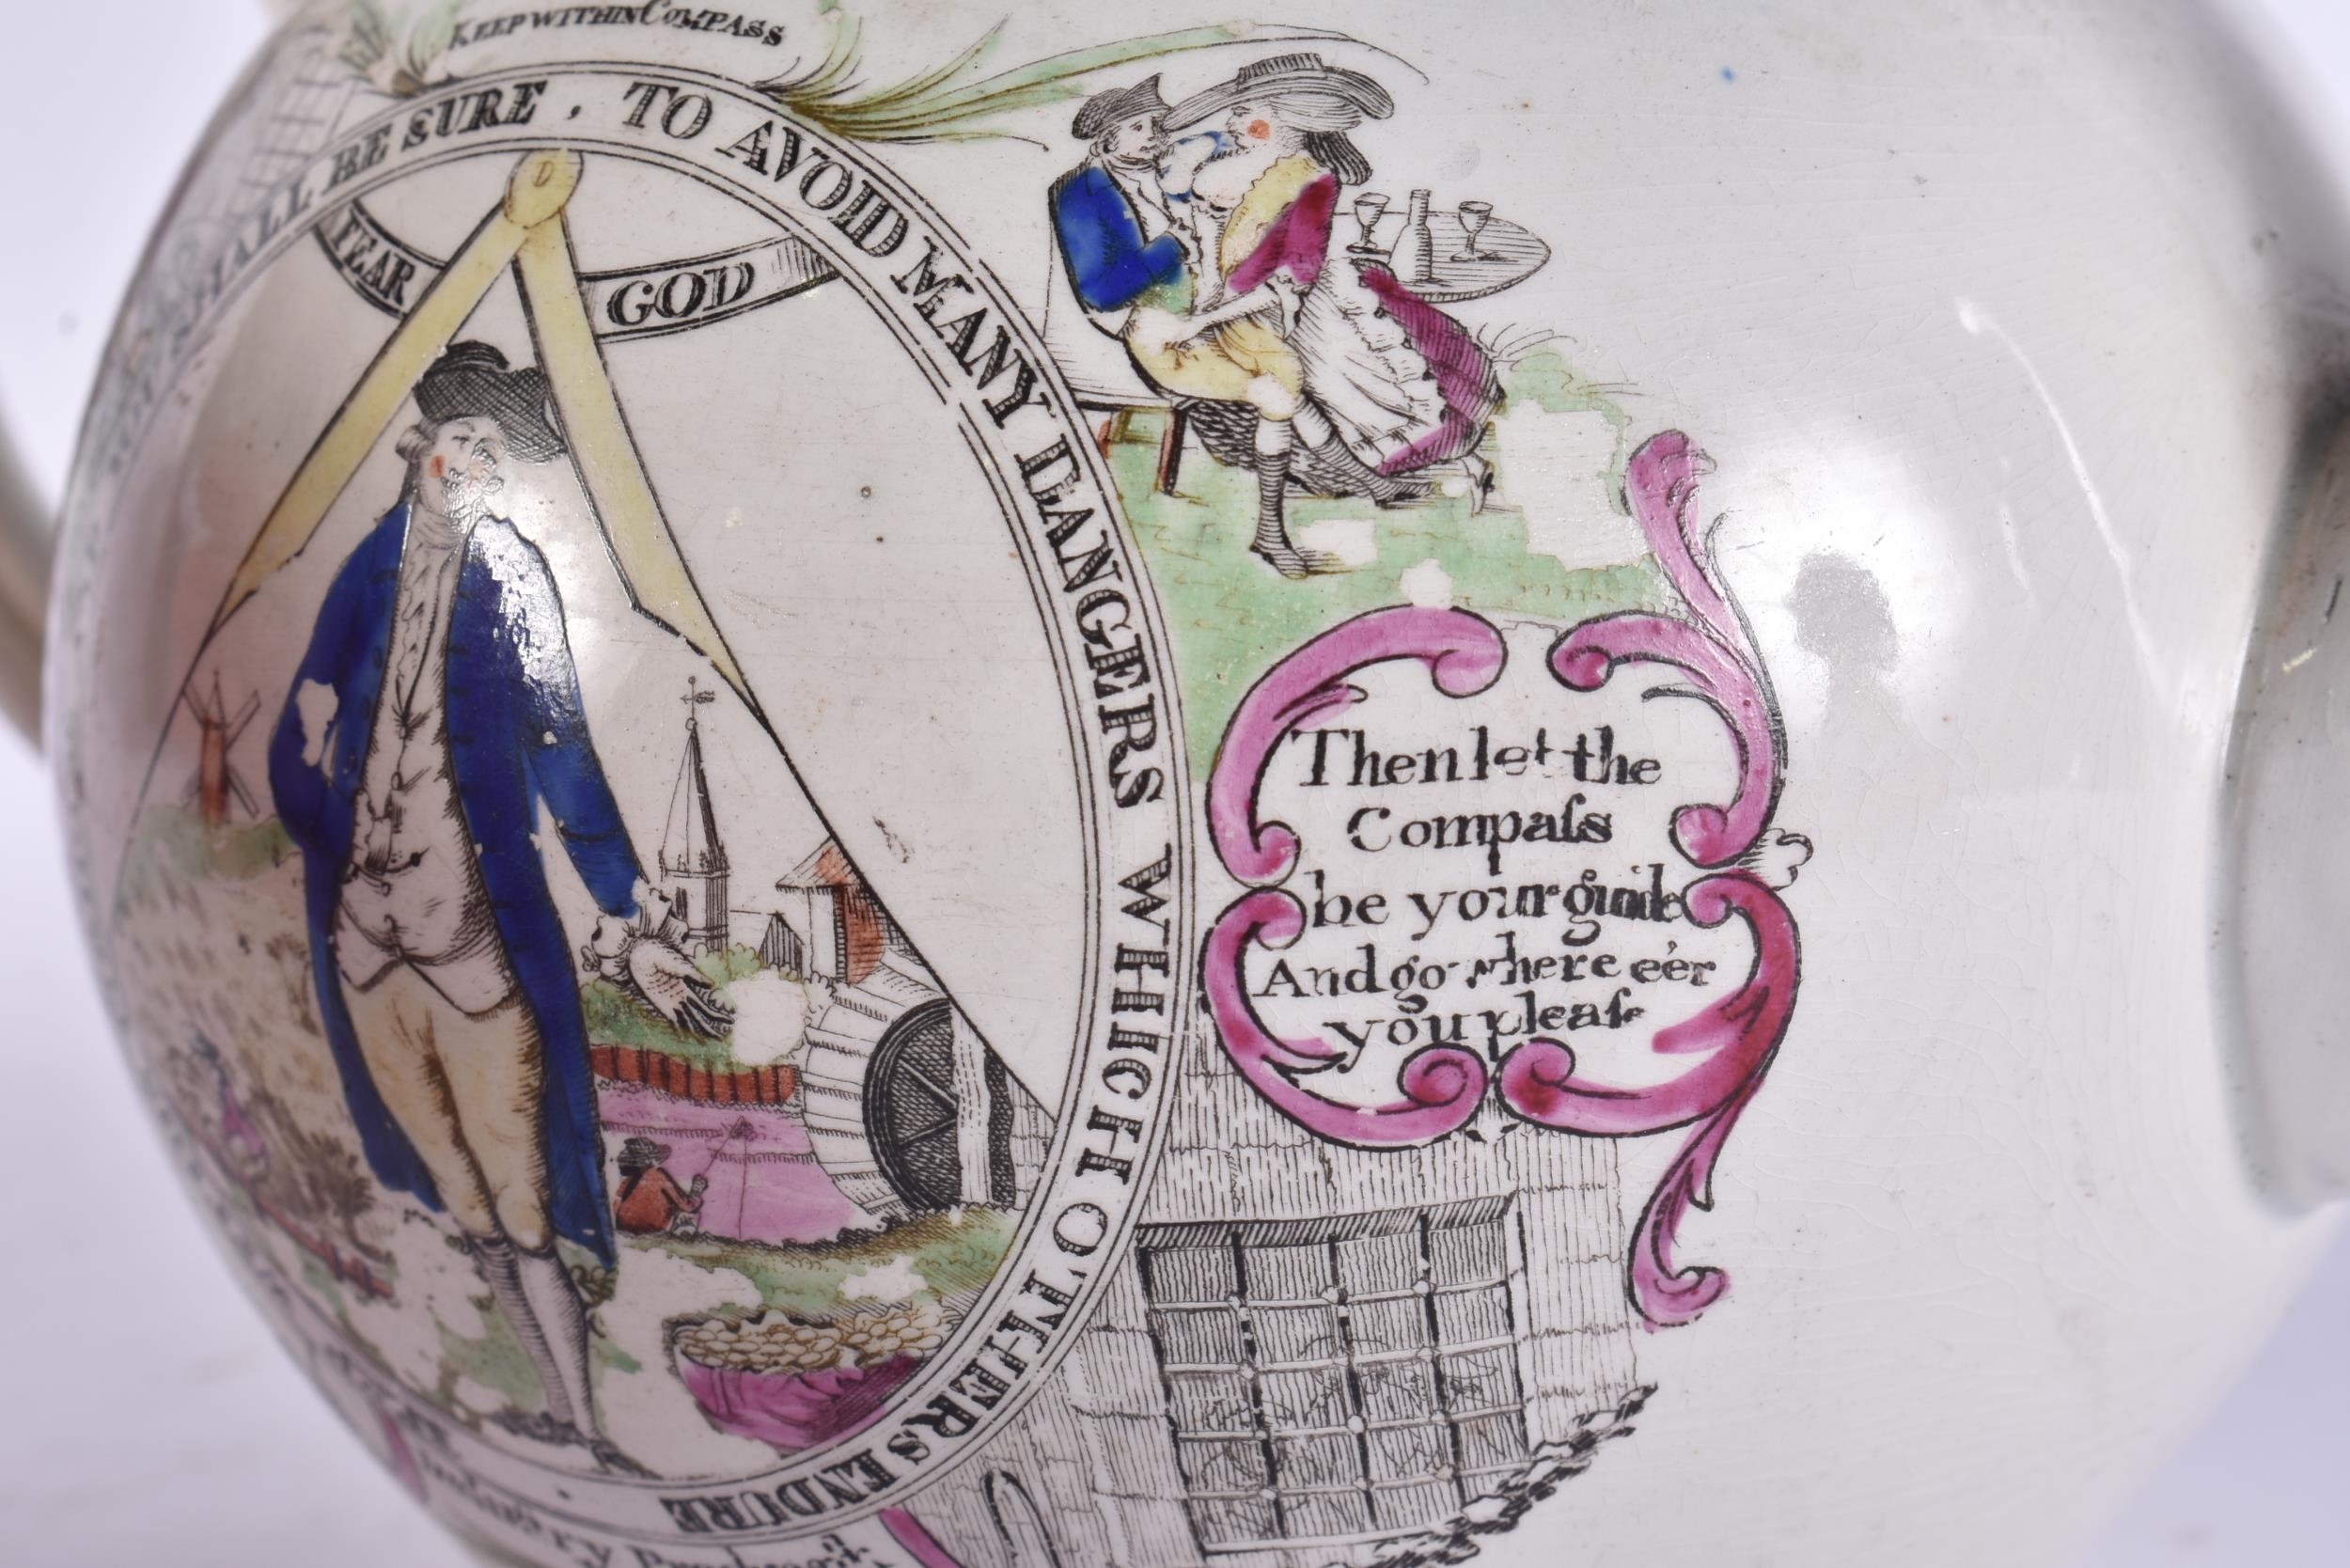 KEEP WITHIN COMPASS
SHALL BE SURE . TO AVOID MANY DANGERS WHICH OTHERS ENDURE
FEAR GOD
Then let the
Compaſs
be your guide
And go where e'er
you pleaſe